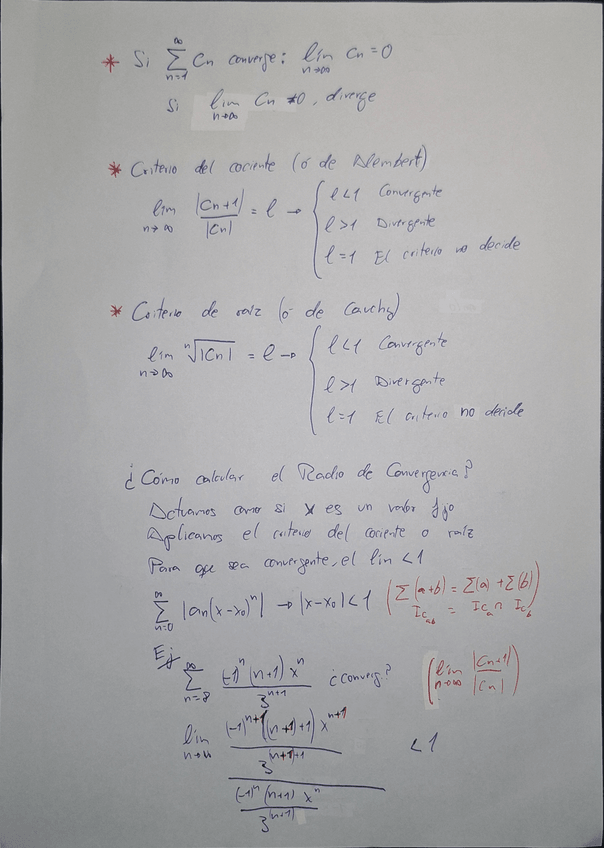 * Si ∞∑n=1 Cn converge: lim n→∞ Cn = 0
Si lim n→∞ Cn ≠0, diverge
* Criterio del cociente (ó de Dlembert)
lim n→∞ |Cn+1|/|Cn| = l → { l<1 Convergente
l>1 Divergente
l=1 El criterio no decide
* Criterio de raíz (ó de Cauchy)
lim n→∞ ⁿ√|Cn| = l → { l<1 Convergente
l>1 Divergente
l=1 El criterio no decide
¿Cómo calcular el Radio de Convergencia?
Actuamos como si x es un valor fijo
Aplicamos el criterio del cociente o raíz
Para que sea convergente, el lim <1
∞∑n=0 |an(x-x₀)ⁿ| → |x-x₀|<1 (∑(a+b) = ∑(a) + ∑(b)
Ic_ab = Ic_a ∩ Ic_b)
Ej ∞∑n=8 (-1)ⁿ(n+1)xⁿ/3ⁿ⁺¹ ¿converg.? (lim n→∞ |Cn+1|/|Cn|)
lim n→∞ (-1)ⁿ⁺¹((n+1)+1)xⁿ⁺¹ / 3⁽ⁿ⁺¹⁾⁺¹ <1
(-1)ⁿ(n+1)xⁿ / 3⁽ⁿ⁺¹⁾